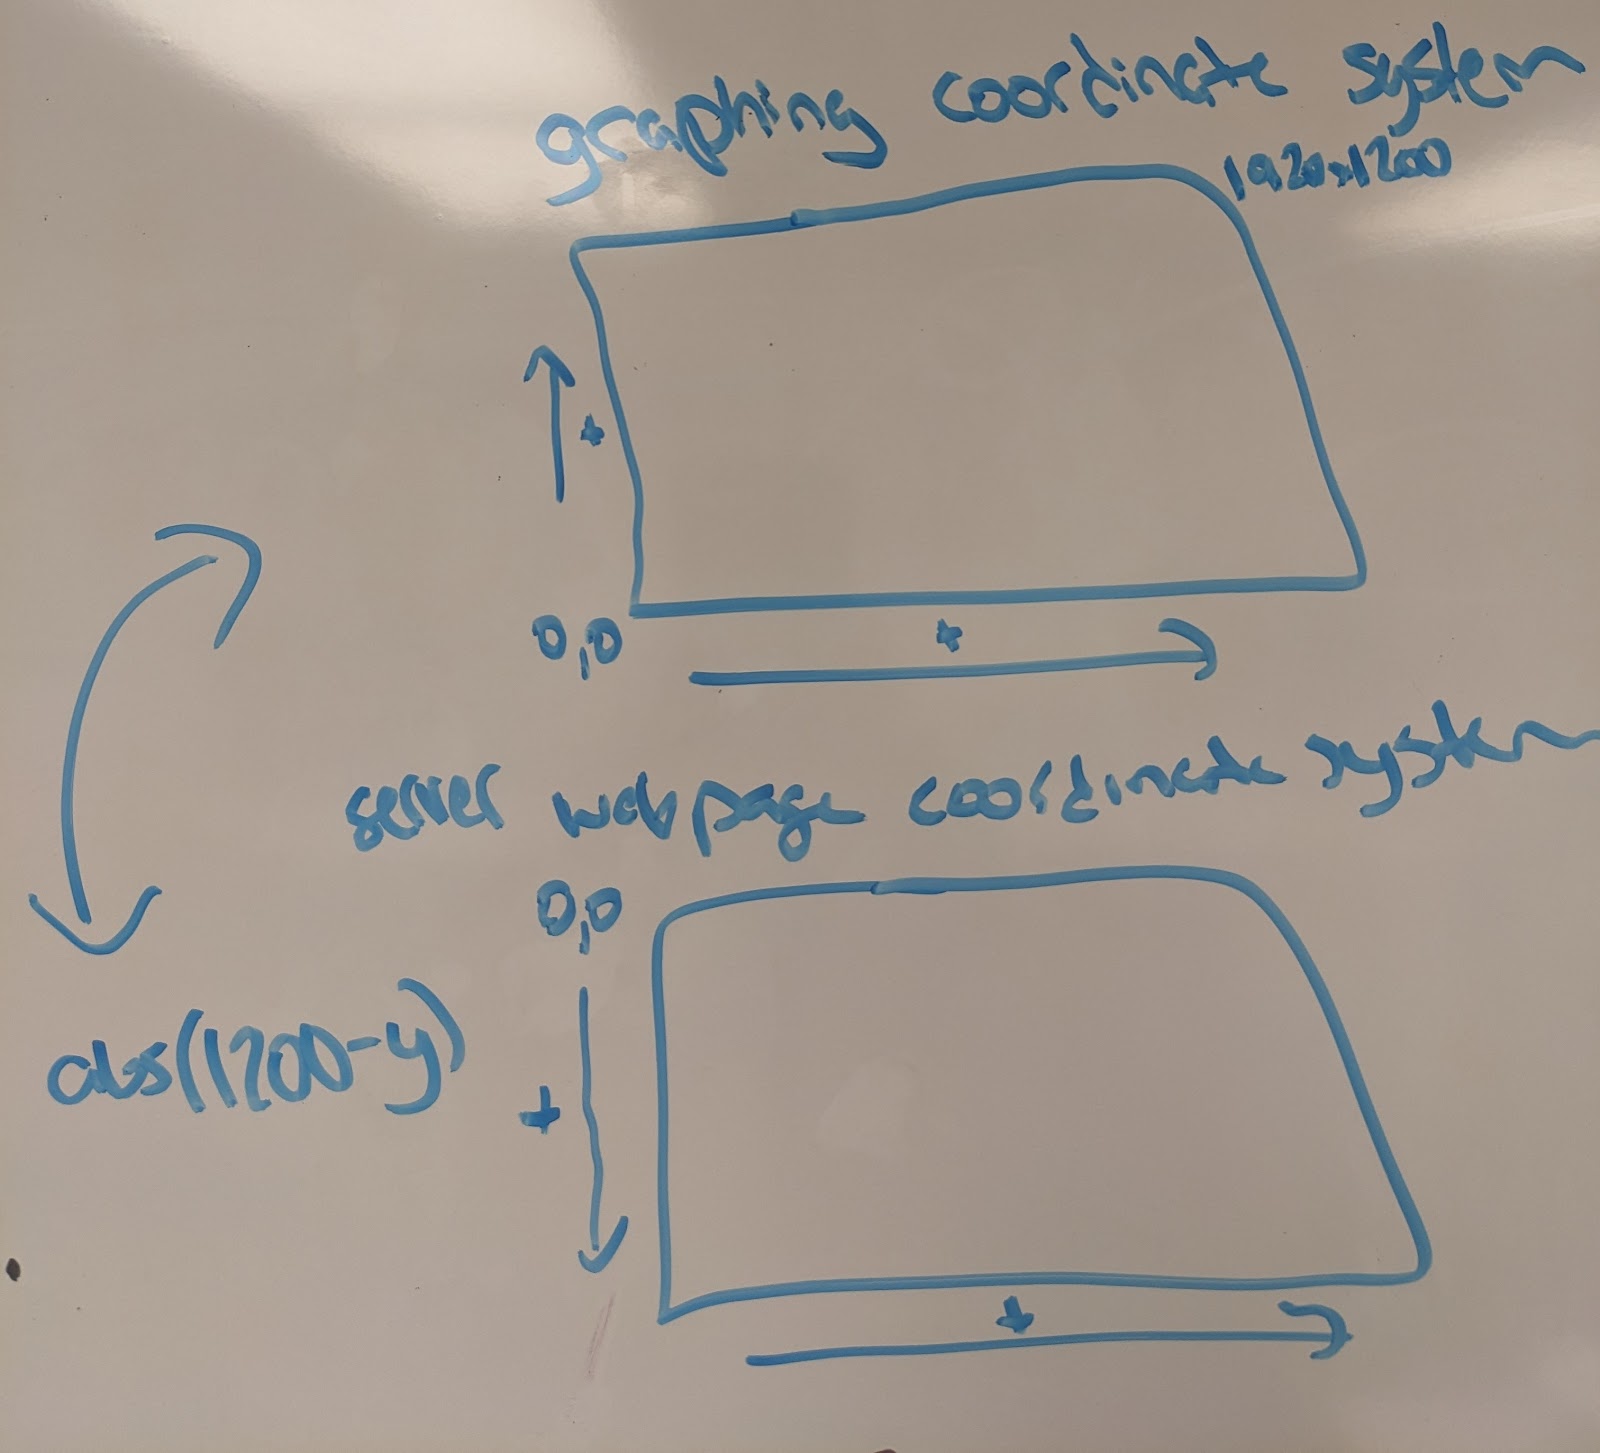 graphing coordinate system
1920x1200
+
0,0
+
server webpage coordinate system
0,0
abs(1200-y)
+
+